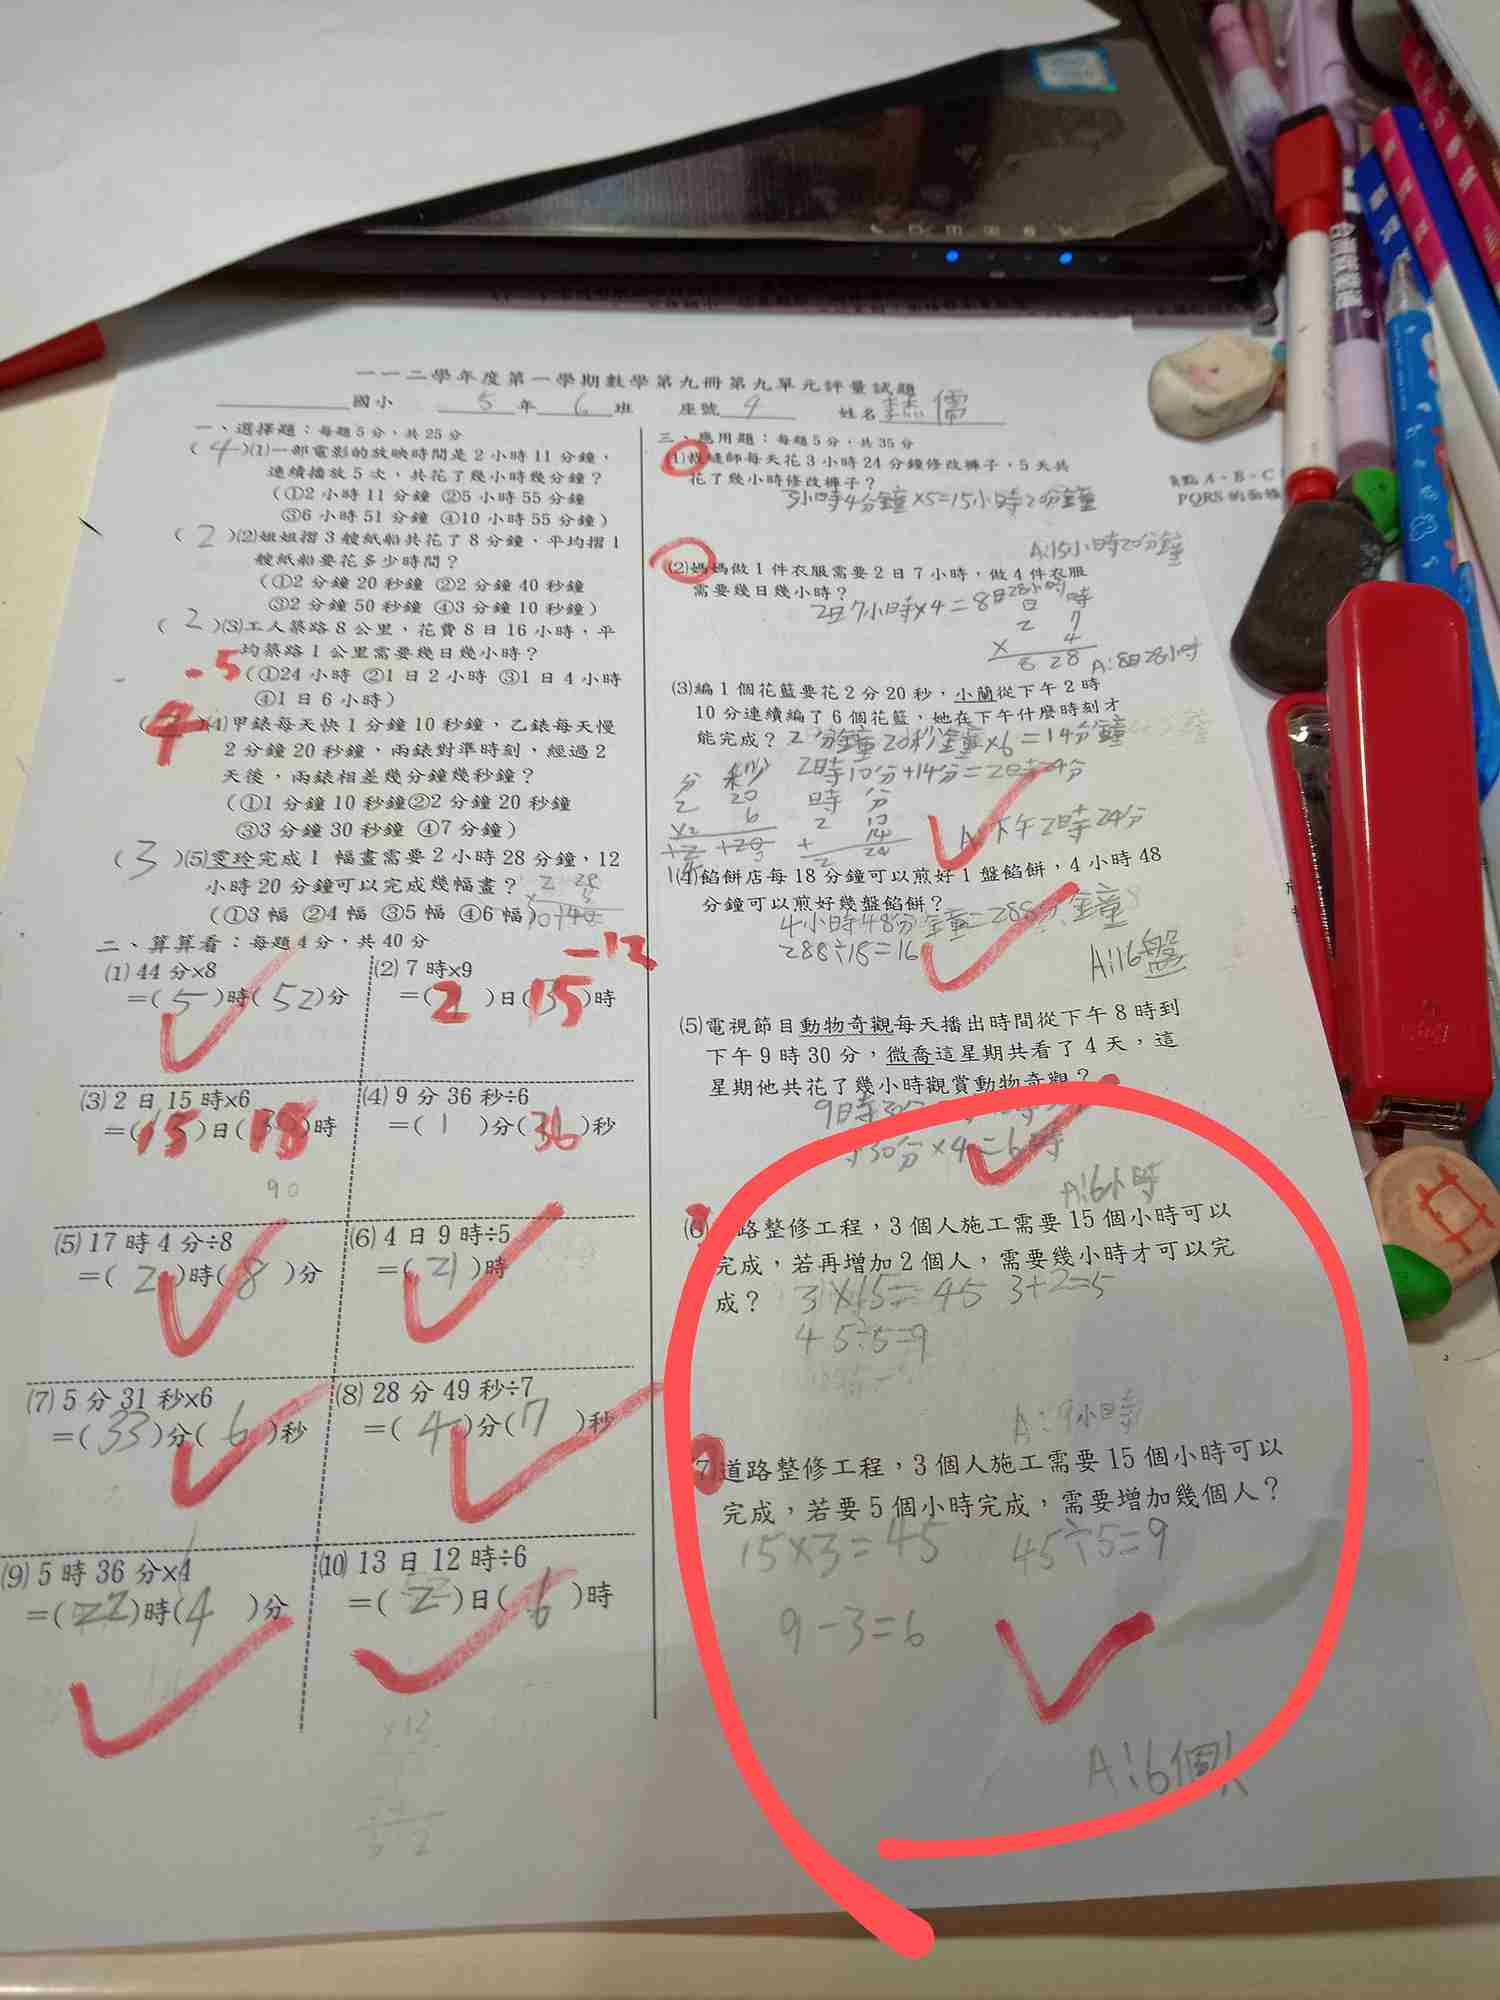 一一二學年度第一學期數學第九冊第九單元評量試題
國小 5 年 6 班 座號 9 姓名 儒
一、選擇題：每題5分，共25分
(4)⑴一部電影的放映時間是2小時11分鐘，
連續播放5次，共花了幾小時幾分鐘？
(①2小時11分鐘 ②5小時55分鐘
③6小時51分鐘 ④10小時55分鐘)
(2)⑵姐姐摺3艘紙船共花了8分鐘，平均摺1
艘紙船要花多少時間？
(①2分鐘20秒鐘 ②2分鐘40秒鐘
③2分鐘50秒鐘 ④3分鐘10秒鐘)
(2)⑶工人築路8公里，花費8日16小時，平
均築路1公里需要幾日幾小時？
-5
(①24小時 ②1日2小時 ③1日4小時
④1日6小時)
(4)⑷甲錶每天快1分鐘10秒鐘，乙錶每天慢
2分鐘20秒鐘，兩錶對準時刻，經過2
天後，兩錶相差幾分鐘幾秒鐘？
(①1分鐘10秒鐘②2分鐘20秒鐘
③3分鐘30秒鐘 ④7分鐘)
(3)⑸雯玲完成1幅畫需要2小時28分鐘，12
小時20分鐘可以完成幾幅畫？
2 28
(①3幅 ②4幅 ③5幅 ④6幅)
10 140
二、算算看：每題4分，共40分
-12
⑴ 44分×8
=(5)時(52)分
⑵ 7時×9
=(2)日(15)時
⑶ 2日15時×6
=(15)日(18)時
90
⑷ 9分36秒÷6
=(1)分(36)秒
⑸ 17時4分÷8
=(2)時(8)分
⑹ 4日9時÷5
=(21)時
⑺ 5分31秒×6
=(33)分(6)秒
⑻ 28分49秒÷7
=(4)分(7)秒
⑼ 5時36分×4
=(22)時(4)分
⑽ 13日12時÷6
=(2)日(6)時
三、應用題：每題5分，共35分
⑴裁縫師每天花3小時24分鐘修改褲子，5天共
花了幾小時修改褲子？
3小時4分鐘×5=15小時20分鐘
A:15小時20分鐘
⑵媽媽做1件衣服需要2日7小時，做4件衣服
需要幾日幾小時？
2日7小時×4=8日28小時
日 時
2 7
× 4
8 28
A:8日28小時
⑶編1個花籃要花2分20秒，小蘭從下午2時
10分連續編了6個花籃，她在下午什麼時刻才
能完成？
2分鐘20秒鐘×6=14分鐘
2時10分+14分=2時24分
分 秒
2 20
時 分
2 10
+ 14
2 24
A:下午2時24分
⑷餡餅店每18分鐘可以煎好1盤餡餅，4小時48
分鐘可以煎好幾盤餡餅？
4小時48分鐘=288分鐘
288÷18=16
A:16盤
⑸電視節目動物奇觀每天播出時間從下午8時到
下午9時30分，微喬這星期共看了4天，這
星期他共花了幾小時觀賞動物奇觀？
9時30分
30分×4=6時
A:6小時
(6) 路整修工程，3個人施工需要15個小時可以
完成，若再增加2個人，需要幾小時才可以完
成？
3×15=45 3+2=5
45÷5=9
A:9小時
7 道路整修工程，3個人施工需要15個小時可以
完成，若要5個小時完成，需要增加幾個人？
15×3=45 45÷5=9
9-3=6
A:6個人
點A、B、C
PQRS的面積